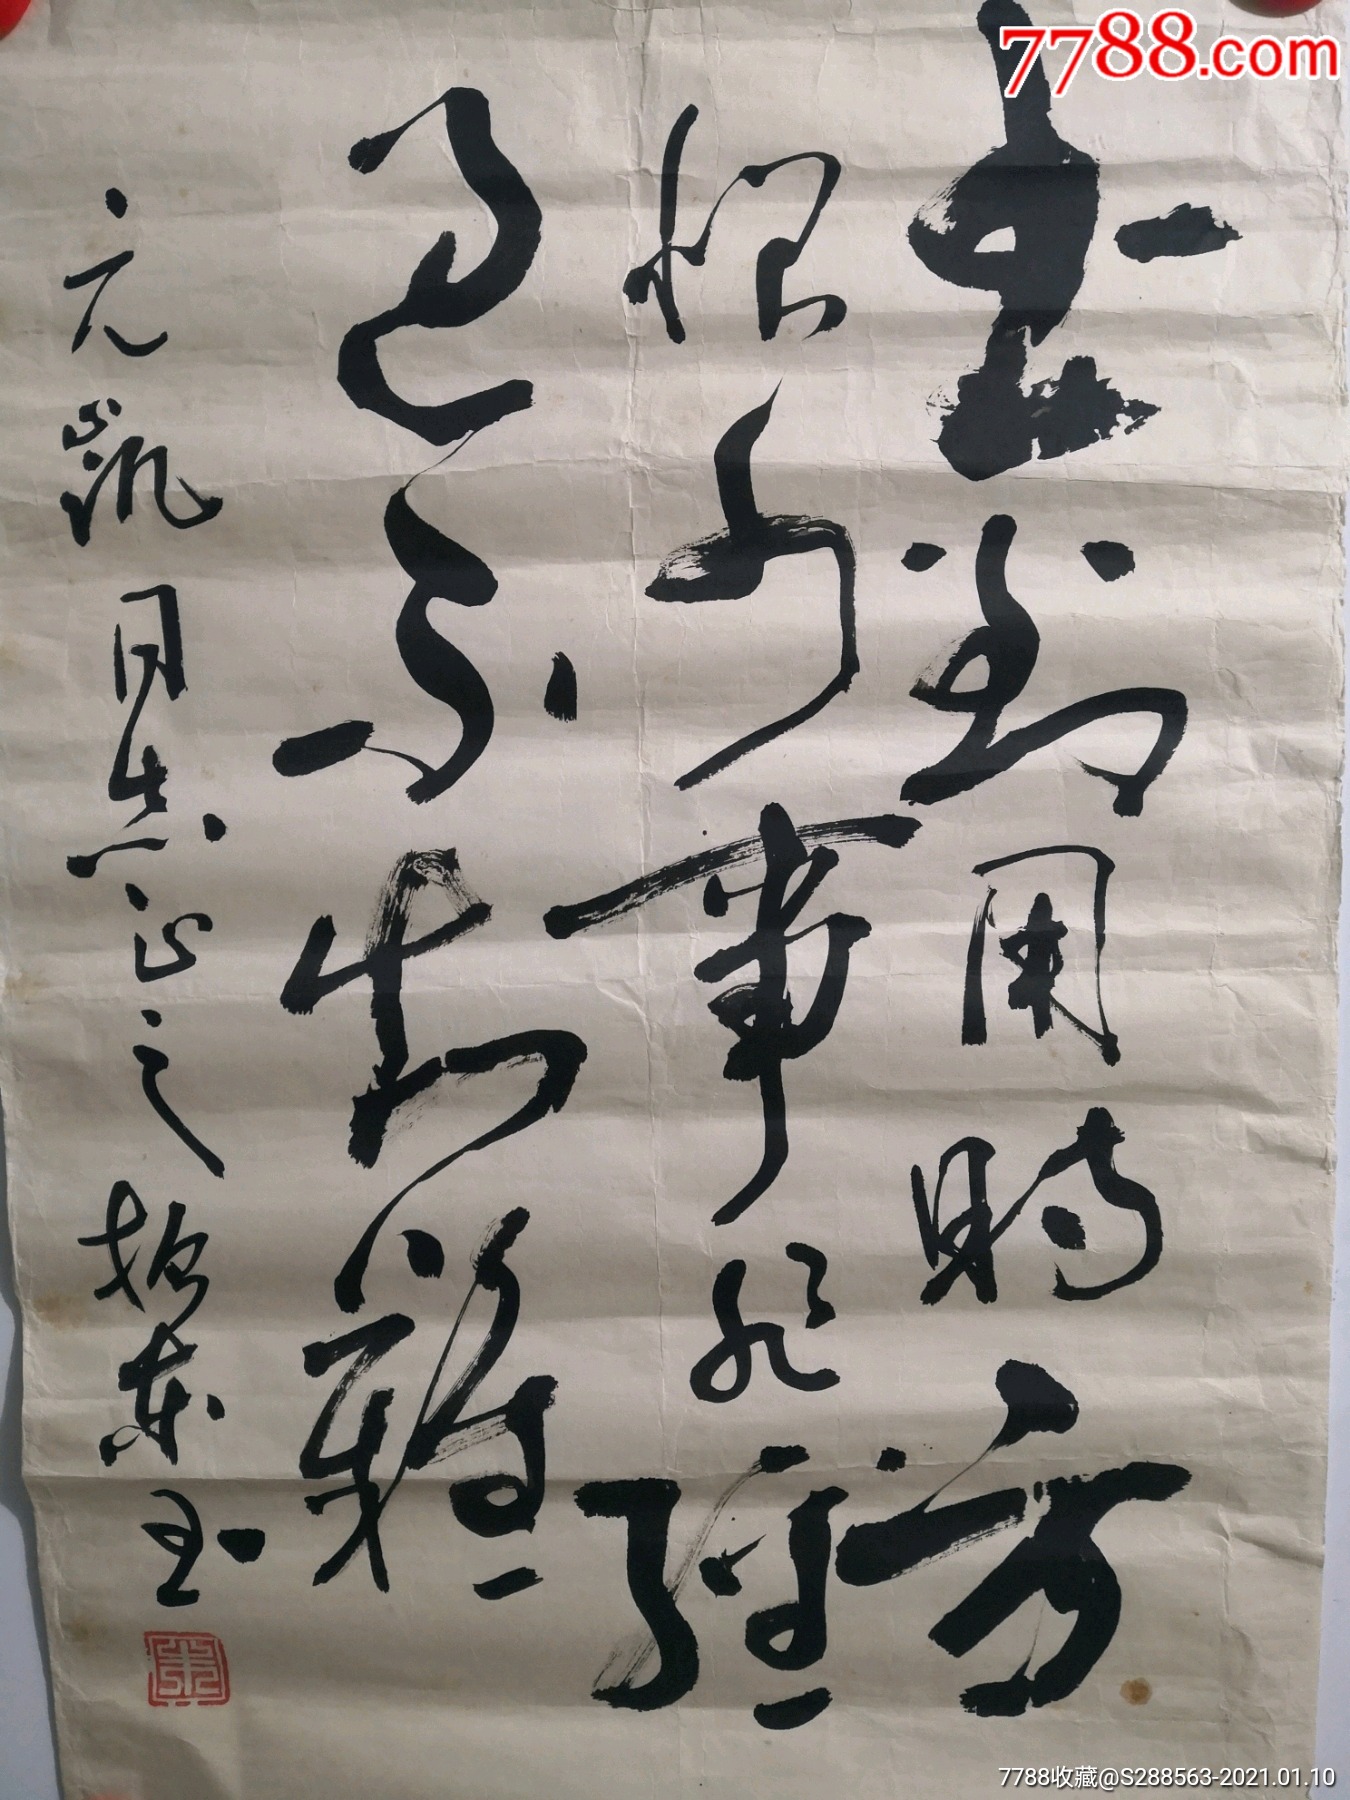 书到用时方
恨少事非经
过不知难
元凯同志正之振东书
7788.com
7788收藏@S288563-2021.01.10